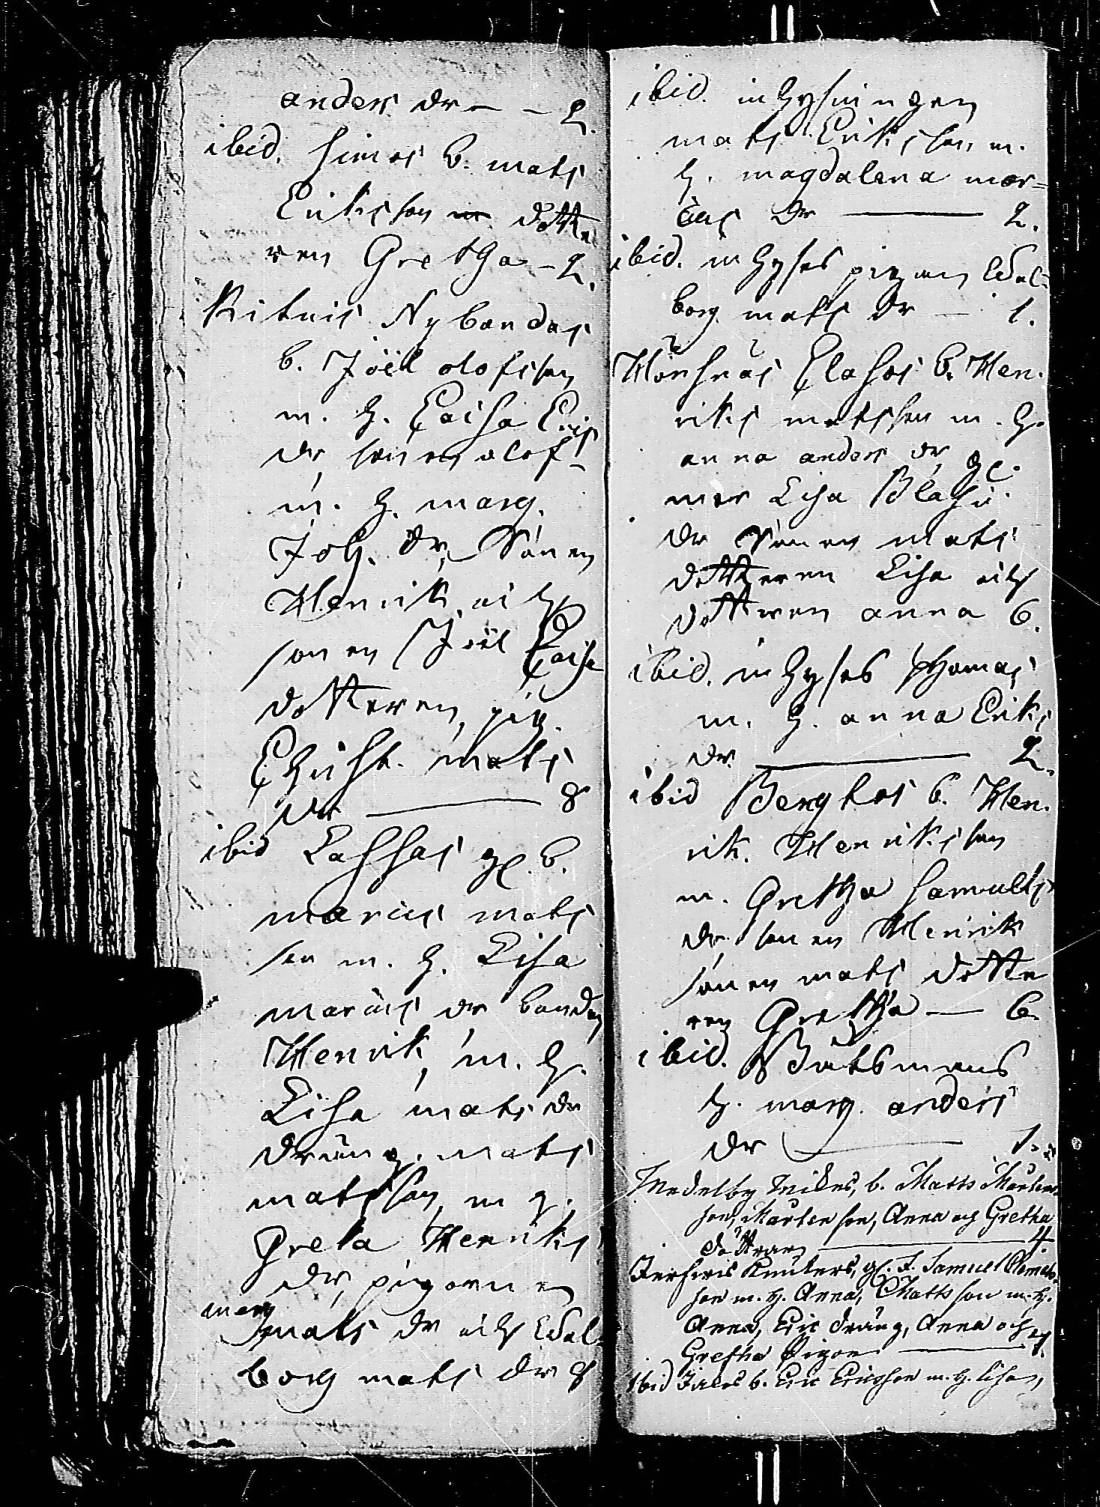 anders dr — — 2.
ibid. simos b. mats
Eriksson m dotte
ren Gretha — 2.
Kitnis Nybondas
b. Joël olofsson
m. h. Caisa Eriks
dr sonen olof
m. h. marg.
Joh. dr, Sonen
Henrik, och
sonen Joël Caisa
dotteren, pig.
Elisab. mats
dr ——— 8
ibid Lassas gl. b.
marcus mats
son m. h. Lisa
marcus dr bonden
Henrik, m. h.
Lisa mats dr
dräng. mats
matsson, m h.
Greta Henriks
dr, pigorne
marg
mats dr och Wal-
borg mats dr 8
ibid. inhysingen
mats Eriksson m.
h. magdalena mar-
cus dr ——— 2.
ibid. inhyses pigan Wal-
borg mats dr — 1.
Hörsnäs Clasas b. Hen-
riks matsson m. h.
anna anders dr gl.
mor Lisa Blasii
dr sonen mats
dotteren Lisa och
dotteren anna 6.
ibid. inhyses Thomas
m. h. anna Eriks
dr ——— 2.
ibid Bengtas b. Hen-
rik. Henriksson
m. Gretha samuels
dr sonen Henrik
sonen mats dotte
ren Gretha — 6.
ibid. Båtsmans
h. marg. anders
dr ——— 1.
Medelby Mickes, b. Matts Mårtens
son, Mårten son, Anna och Gretha
döttrar ——— 4
Knuters, gl. f. Samuel
son m. h. Anna, Matts son m. h.
Anna, Eric dräng, Anna och
Gretha Pigor ———
Ibid b. Eric Ericsson m. h. Lisa,